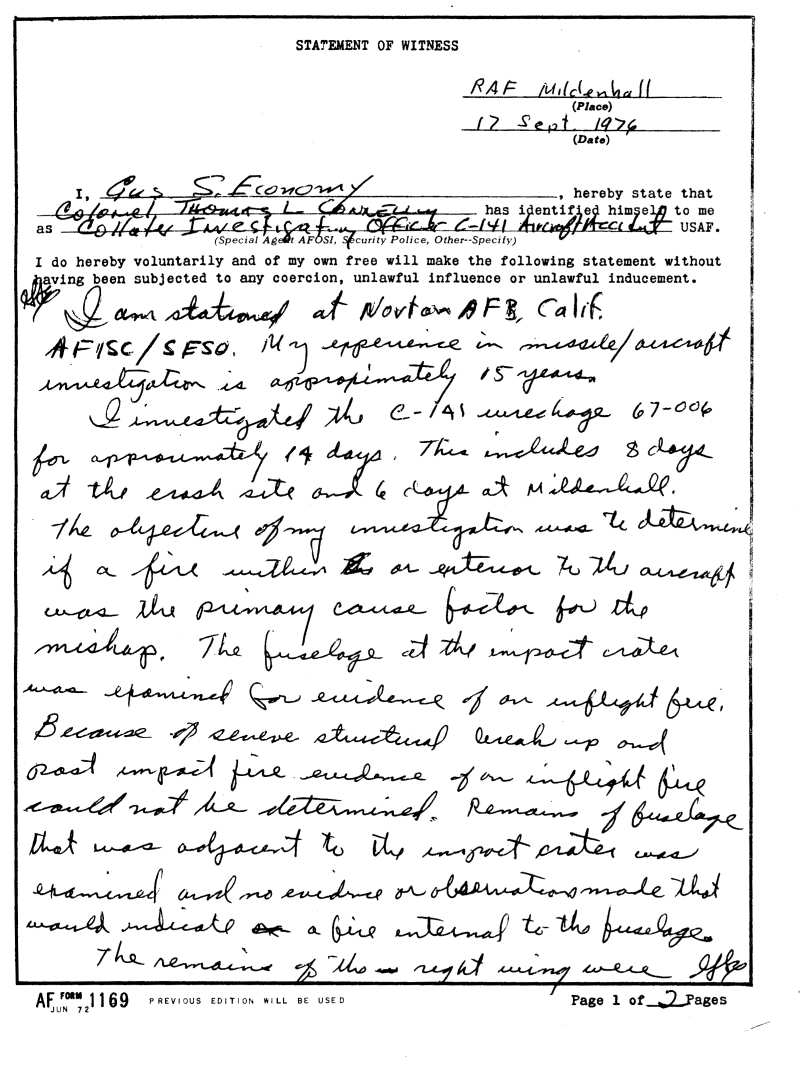 STATEMENT OF WITNESS
RAF Mildenhall
(Place)
17 Sept 1976
(Date)
I, Gus S. Economy, hereby state that
Colonel Thomas L. Connelly has identified himself to me
as Collater Investigating Officer C-141 Aircraft Accident USAF.
(Special Agent AFOSI, Security Police, Other--Specify)
I do hereby voluntarily and of my own free will make the following statement without
having been subjected to any coercion, unlawful influence or unlawful inducement.
I am stationed at Norton AFB, Calif.
AFISC/SESO. My experience in missile/aircraft
investigation is approximately 15 years.
I investigated the C-141 wreckage 67-006
for approximately 14 days. This includes 8 days
at the crash site and 6 days at Mildenhall.
The objective of my investigation was to determine
if a fire within or exterior to the aircraft
was the primary cause factor for the
mishap. The fuselage at the impact crater
was examined for evidence of an inflight fire.
Because of severe structural break up and
post impact fire evidence of an inflight fire
could not be determined. Remains of fuselage
that was adjacent to the impact crater was
examined and no evidence or observations made that
would indicate a fire internal to the fuselage.
The remains of the right wing were
AF FORM JUN 72 1169 PREVIOUS EDITION WILL BE USED Page 1 of 2 Pages